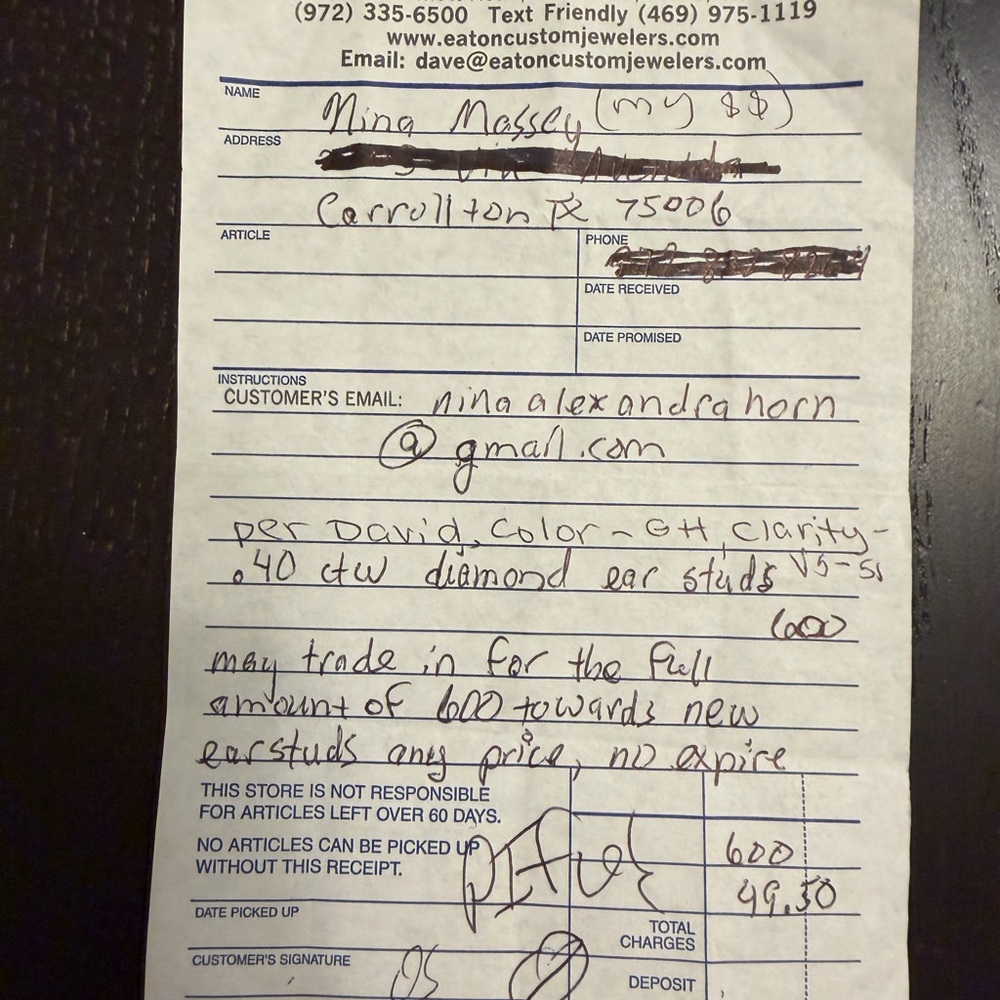 (972) 335-6500 Text Friendly (469) 975-1119
www.eatoncustomjewelers.com
Email: dave@eatoncustomjewelers.com
NAME Nina Massey (my $$)
ADDRESS
Carrollton TX 75006
ARTICLE
PHONE
DATE RECEIVED
DATE PROMISED
INSTRUCTIONS
CUSTOMER'S EMAIL: ninaalexandrahorn
@gmail.com
per David, Color - GH, Clarity-
.40 ctw diamond ear studs VS-SI
600
may trade in for the full
amount of 600 towards new
earstuds any price, no expire
THIS STORE IS NOT RESPONSIBLE
FOR ARTICLES LEFT OVER 60 DAYS.
NO ARTICLES CAN BE PICKED UP
WITHOUT THIS RECEIPT.
600
49.50
DATE PICKED UP
TOTAL
CHARGES
CUSTOMER'S SIGNATURE
DEPOSIT